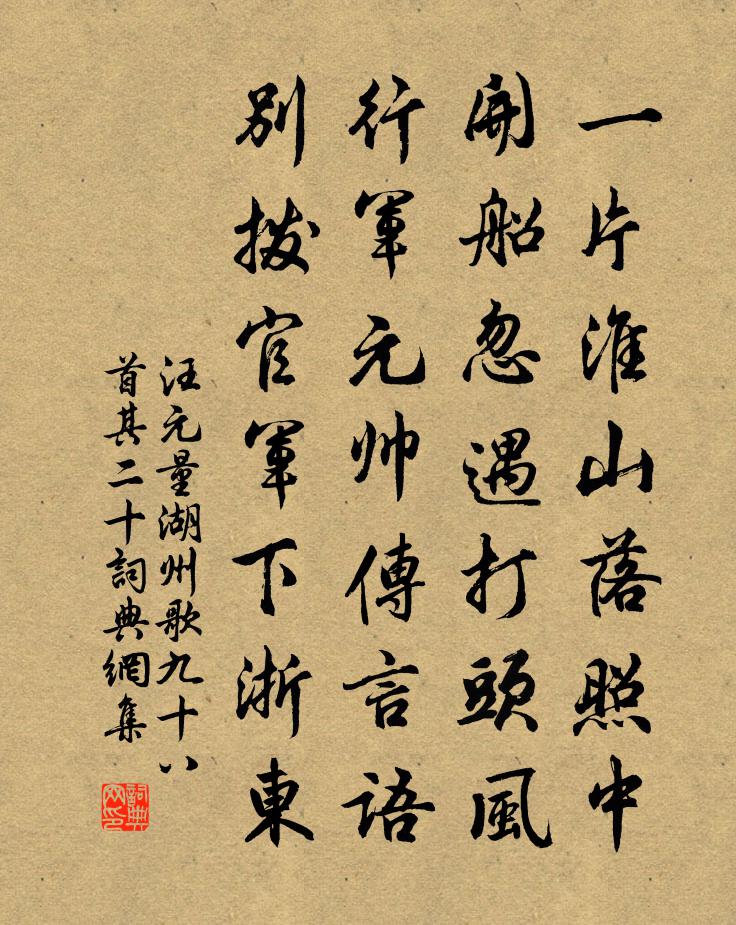 一片淮山落照中
開船忽遇打頭風
行軍元帅傳言語
别拨官軍下浙東
汪元量湖州歌九十八
首其二十詞典網集
詞典網印